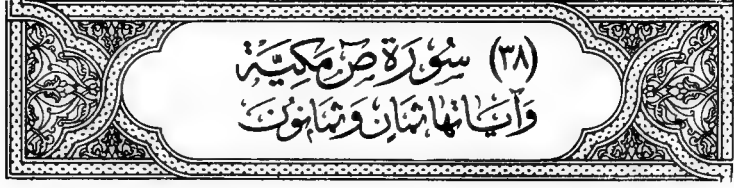 (٣٨) سُورَة صٓ مَكِيَّة
وَآيَاتهَا ثمَانٍ وَثمَانونَ